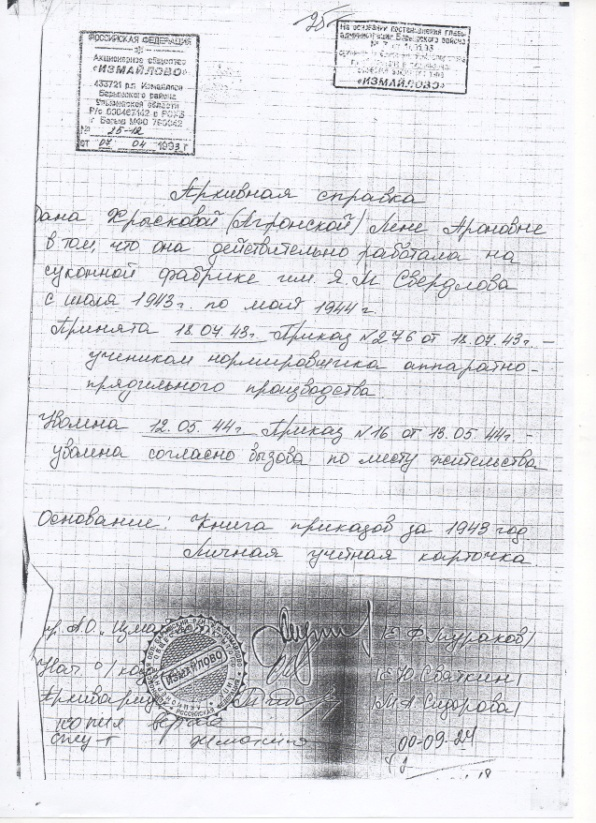 25
РОССИЙСКАЯ ФЕДЕРАЦИЯ
Акционерное общество
«ИЗМАЙЛОВО»
433721 р.п. Измайлово
Барышского района
Ульяновской области
№ 25-12
от 07 04 1993 г
На основании постановления главы
администрации Барышского района
«ИЗМАЙЛОВО»
Архивная справка
Дана Хрысковой (Агронской) Лене Ароновне
в том, что она действительно работала на
суконной фабрике им. Я. М Свердлова
с июля 1943 г. по май 1944 г.
Принята 18.07.43г. Приказ №276 от 18.07.43г. –
учеником нормировщика аппаратно-
прядильного производства
Уволена 12.05.44г. Приказ №16 от 13.05.44г –
уволена согласно вызова по месту жительства
Основание: Книга приказов за 1943 год
Личная учётная карточка.
А.О. „Изма
ИЗМАЙЛОВО
Нач о/
/Е Ю Святкин/
Архивариус
/М А Сидорова/
копия верна
00-09.24